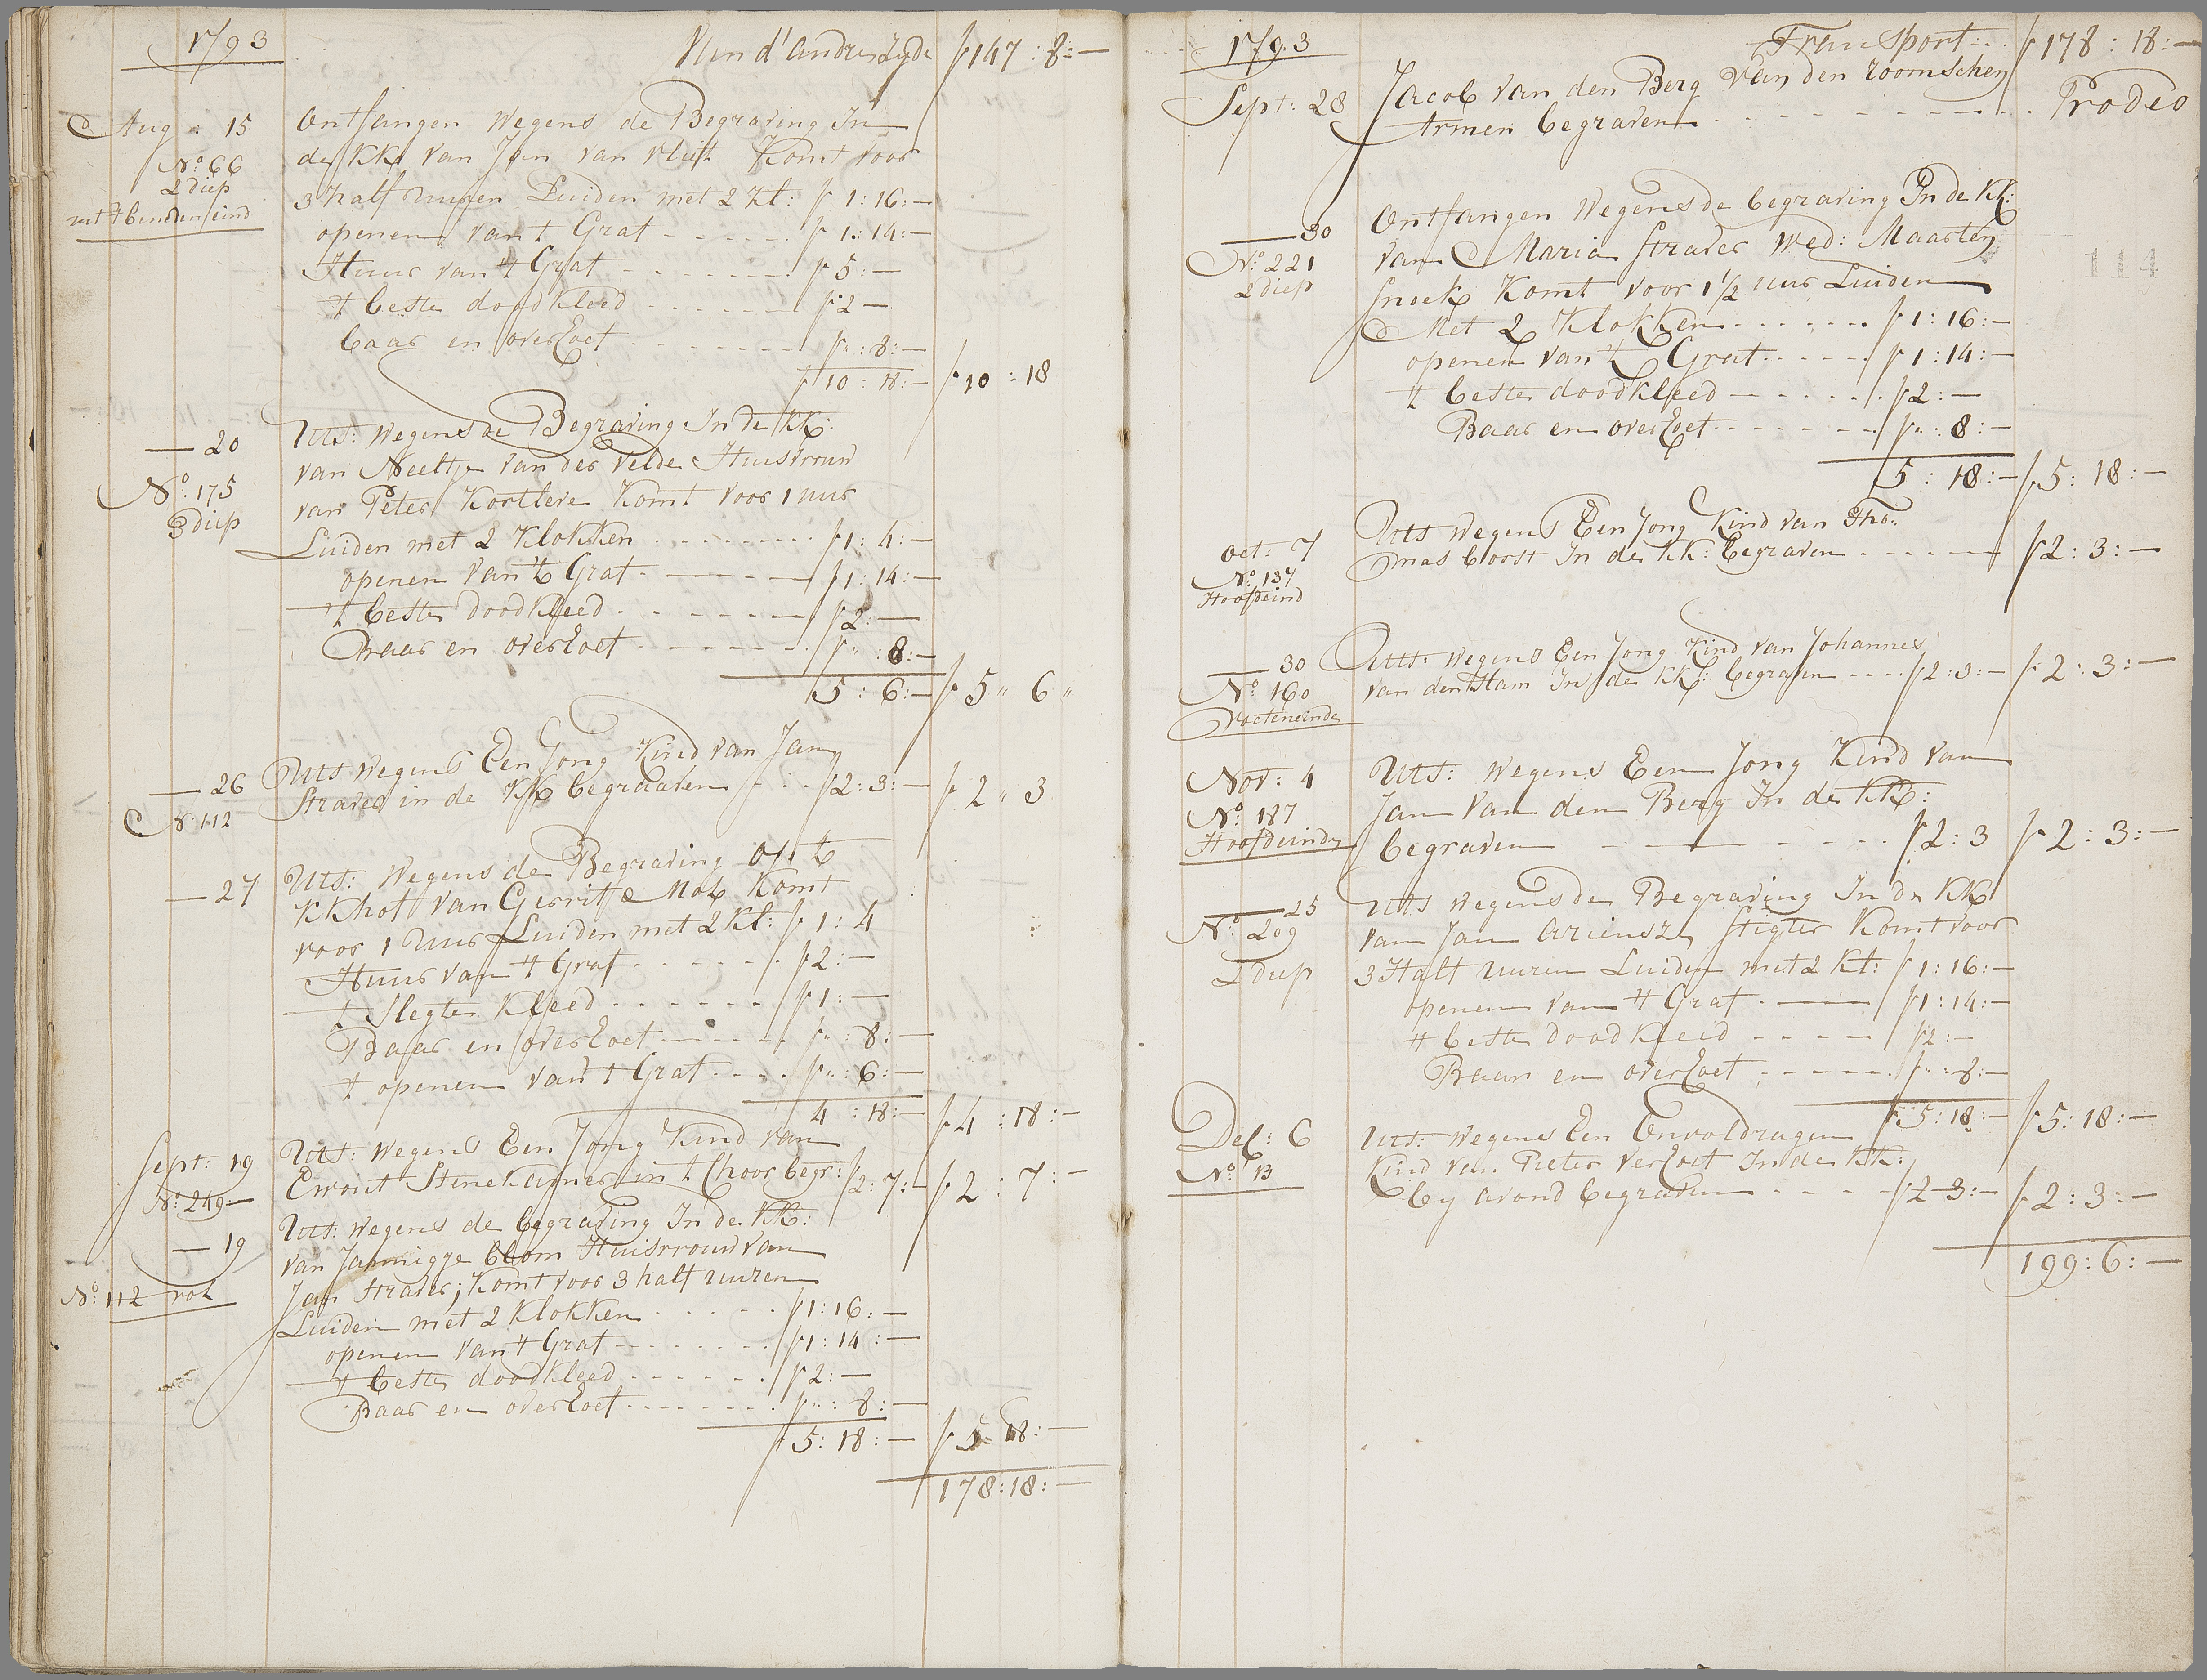 1793
Van d'andre Zyde f 147 : 8 : —
Aug 15
No 66
2 diep
uit 't benden eind
Ontfangen Wegens de Begraving In
de KK: van Jan van vliet Komt voor
3 half uuren Luiden met 2 Kl: f 1 : 16 : —
openen van 't Graf f 1 : 14 : —
Huur van 't Graf f 5 : —
't beste doodkleed f 2 —
baar en overLoet f " : 8 : —
f 10 : 18 : — f 10 : 18
— 20
No: 175
3 diep
Uts: Wegens de Begraving In de KK:
van Neeltje van der velde Huisvrouw
van Peter Kortleve Komt voor 1 uur
Luiden met 2 Klokken f 1 : 4 : —
openen van 't Graf f 1 : 14 : —
't beste doodkleed f 2 : —
Baar en overLoet f " : 8 : —
5 : 6 : — f 5 " 6 "
— 26
No 112
Uts wegens Een Jong Kind van Jan
Straver in de KK begraaven f 2 : 3 : — f 2 " 3
— 27
Uts: Wegens de Begraving op 't
KKhof van Gerrit Mol Komt
voor 1 uur Luiden met 2 Kl: f 1 : 4
Huur van 't Graf f 2 : —
't slegte Kleed f 1 : —
Baar en overLoet f " : 8 : —
't openen van 't Graf f " : 6 : —
4 : 18 : — f 4 : 18 : —
Sept: 19
No: 249 : —
Uts: wegens Een Jong Kind van
Ewout Stenekamer in 't Choor begr: f 2 : 7 : — f 2 : 7 : —
— 19
No: 112 vol
Uts: wegens de begraving In de KK:
van Jannigje blom Huisvrouw van
Jan Straver; Komt voor 3 half uuren
Luiden met 2 Klokken f 1 : 16 : —
openen van 't Graf f 1 : 14 : —
't beste doodkleed f 2 : —
Baar en overLoet f " : 8 : —
f 5 : 18 : — f 5 : 18 : —
178 : 18 : —
1793
Transport f 178 : 18 : —
Sept: 28
Jacob van den Berg van den roomschen
Armen begraven Prodeo
— 30
No: 221
2 diep
Ontfangen Wegens de begraving In de KK:
van Maria Straver Wed: Maarten
Snoek Komt voor 1 1/2 uur Luiden
Met 2 Klokken f 1 : 16 : —
openen van 't Graf f 1 : 14 : —
't beste doodkleed f 2 : —
Baar en overLoet f " : 8 : —
5 : 18 : — f 5 : 18 : —
114
oct: 7
No: 137
Hoofdeind
Uts wegens Een Jong Kind van Tho:
mas boost In de KK: begraven f 2 : 3 : —
— 30
No: 160
voeteneinde
Uts: wegens Een Jong Kind van Johannes
van den Ham In de KK: begraven f 2 : 3 : — f 2 : 3 : —
Nov: 4
No: 187
Hoofdeinde
Uts: wegens Een Jong Kind van
Jan van den Berg In de KK:
begraven f 2 : 3 f 2 : 3 : —
— 25
No: 209
2 diep
Uts wegens de Begraving In de KK
van Jan Ariensz Stigter Komt voor
3 Half uuren Luiden met 2 Kl: f 1 : 16 : —
openen van 't Graf f 1 : 14 : —
't beste doodkleed f 2 : —
Baar en overLoet f " : 8 : —
f 5 : 18 : — f 5 : 18 : —
Dec: 6
No: 13
Uts: wegens Een Onvoldragen
Kind van Pieter verLoet In de KK:
by avond begraven f 2 3 : — f 2 : 3 : —
199 : 6 : —